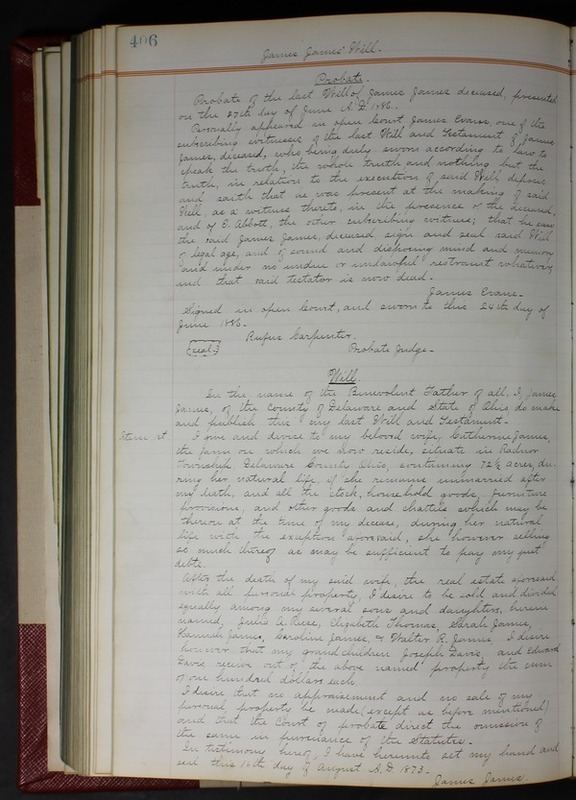 406
James James' Will.
Probate.
Probate of the last Will of James James deceased, presented
on the 27th day of June A.D. 1886.
Personally appeared in open Court James Evans, one of the
subscribing witnesses of the last Will and Testament of James
James, deceased, who being duly sworn according to law to
speak the truth, the whole truth and nothing but the
truth, in relation to the execution of said Will, deposes
and saith that he was present at the making of said
Will, as a witness thereto, in the presence of the deceased,
and of E. Abbott, the other subscribing witness; that he saw
the said James James, deceased sign and seal said Will
of legal age, and of sound and disposing mind and memory
and under no undue or unlawful restraint whatever,
and that said testator is now dead.
James Evans.
Signed in open Court, and sworn to this 24th day of
June 1886.
Rufus Carpenter.
(seal.)
Probate Judge.
Will.
In the name of the Benevolent Father of all, I, James
James, of the County of Delaware and State of Ohio, do make
and publish this my last Will and Testament.
Item 1st
I give and devise to my beloved wife, Catherine James,
the farm on which we now reside, situate in Radnor
Township Delaware County Ohio, containing 72½ acres, du-
ring her natural life, if she remains unmarried after
my death, and all the stock, household goods, furniture
provisions, and other goods and chattels which may be
thereon at the time of my decease, during her natural
life with the exception aforesaid, she however selling
so much thereof as may be sufficient to pay my just
debts.
After the death of my said wife, the real estate aforesaid
with all personal property, I desire to be sold and divided
equally among my several sons and daughters, herein
named, Julia A. Reese, Elizabeth Thomas, Sarah James,
Hannah James, Caroline James, & Walter R. James. I desire
however that my grandchildren Joseph Davis, and Edward
Davis receive out of the above named property the sum
of one hundred dollars each.
I desire that no appraisement and no sale of my
personal property be made (except as before mentioned)
and that the Court of probate direct the omission of
the same in pursuance of the Statutes.
In testimony hereof, I have hereunto set my hand and
seal this 16th day of August A.D. 1873.
James James.